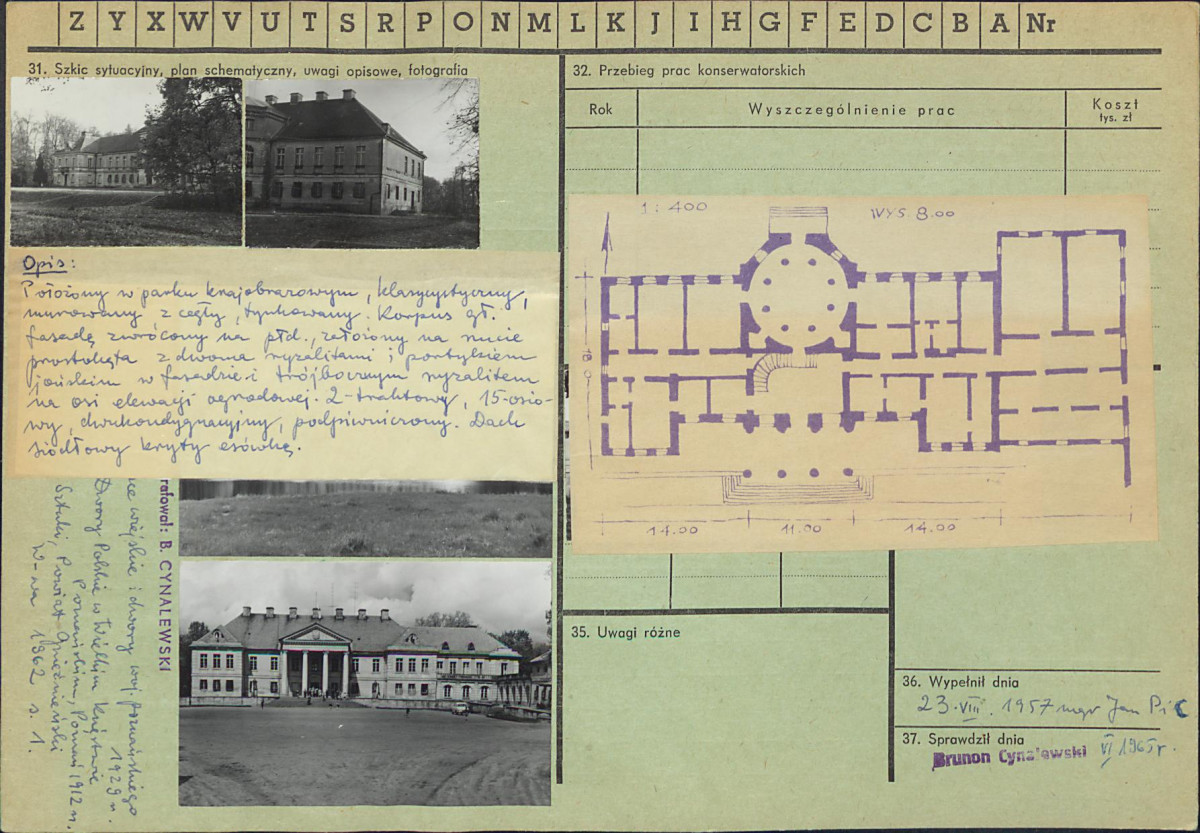 Z Y X W V U T S R P O N M L K J I H G F E D C B A Nr
31. Szkic sytuacyjny, plan schematyczny, uwagi opisowe, fotografia
Opis:
Położony w parku krajobrazowym, klasycystyczny,
murowany z cegły, tynkowany. Korpus gł.
fasadą zwrócony na płd., założony na rzucie
prostokąta z dwoma ryzalitami i portykiem
jońskim w fasadzie i trójbocznym ryzalitem
na osi elewacji ogrodowej. 2-traktowy, 15-osio-
wy, dwukondygnacyjny, podpiwniczony. Dach
siodłowy kryty esówką.
rafował: B. CYNALEWSKI
wiejskie i dwory woj. poznańskiego
1929 r.
Dwory Polskie w Wielkim Księstwie
Poznańskim, Poznań 1912 r.
Sztuki, Powiat Gnieźnieński
W-wa 1962 s. 1.
32. Przebieg prac konserwatorskich
Rok
Wyszczególnienie prac
Koszt
tys. zł
1:400
WYS. 8.00
18.0
14.00
11.00
14.00
35. Uwagi różne
36. Wypełnił dnia
23.VIII.1957 mgr Jan
37. Sprawdził dnia
Brunon Cynalewski VI 1965 r.